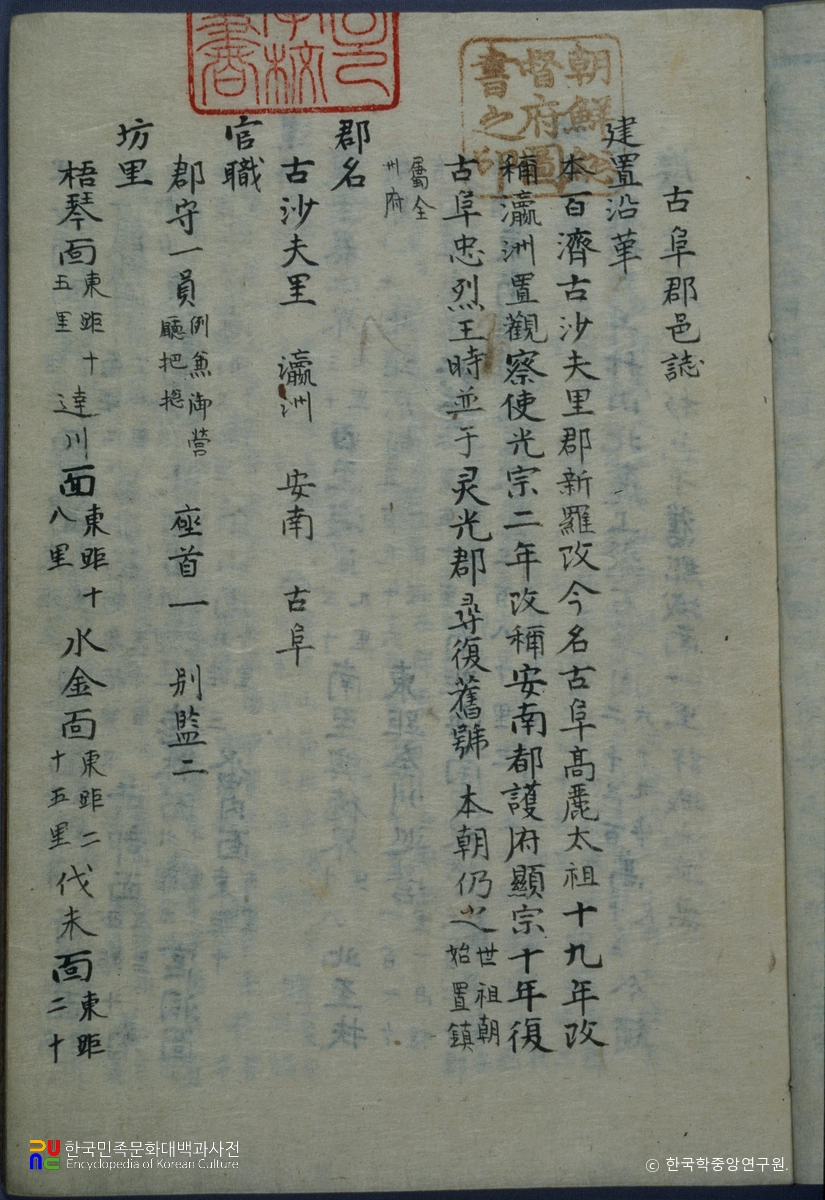 古阜郡邑誌
建置沿革
本百濟古沙夫里郡新羅改今名古阜高麗太祖十九年改
稱瀛洲置觀察使光宗二年改稱安南都護府顯宗十年復
古阜忠烈王時並于灵光郡尋復舊號 本朝仍之世祖朝始置鎮
屬全州府
郡名
古沙夫里 瀛洲 安南 古阜
官職
郡守一員例兼御營廳把摠 座首一 別監二
坊里
梧琴面東距十五里 達川面東距十八里 水金面東距二十五里 伐未面東距二十
朝鮮總督府圖書之印
한국민족문화대백과사전
Encyclopedia of Korean Culture
© 한국학중앙연구원.